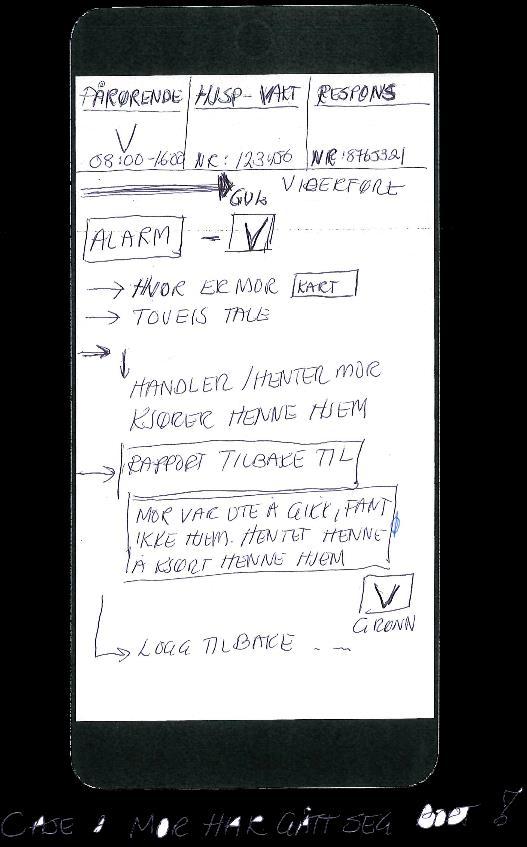 PÅRØRENDE HJSP-VAKT RESPONS
V
08:00-1600 NR: 123456 NR:8765321
GUL VIDERFØRE
ALARM - V
→ HVOR ER MOR KART
→ TOVEIS TALE
→ ↓
HANDLER / HENTER MOR
KJØRER HENNE HJEM
→ RAPPORT TILBAKE TIL
MOR VAR UTE Å GIKK, FANT
IKKE HJEM. HENTET HENNE
Å KJØRT HENNE HJEM
V
GRØNN
→ LOGG TILBAKE . . —
CASE : MOR HAR GÅTT SEG BORT